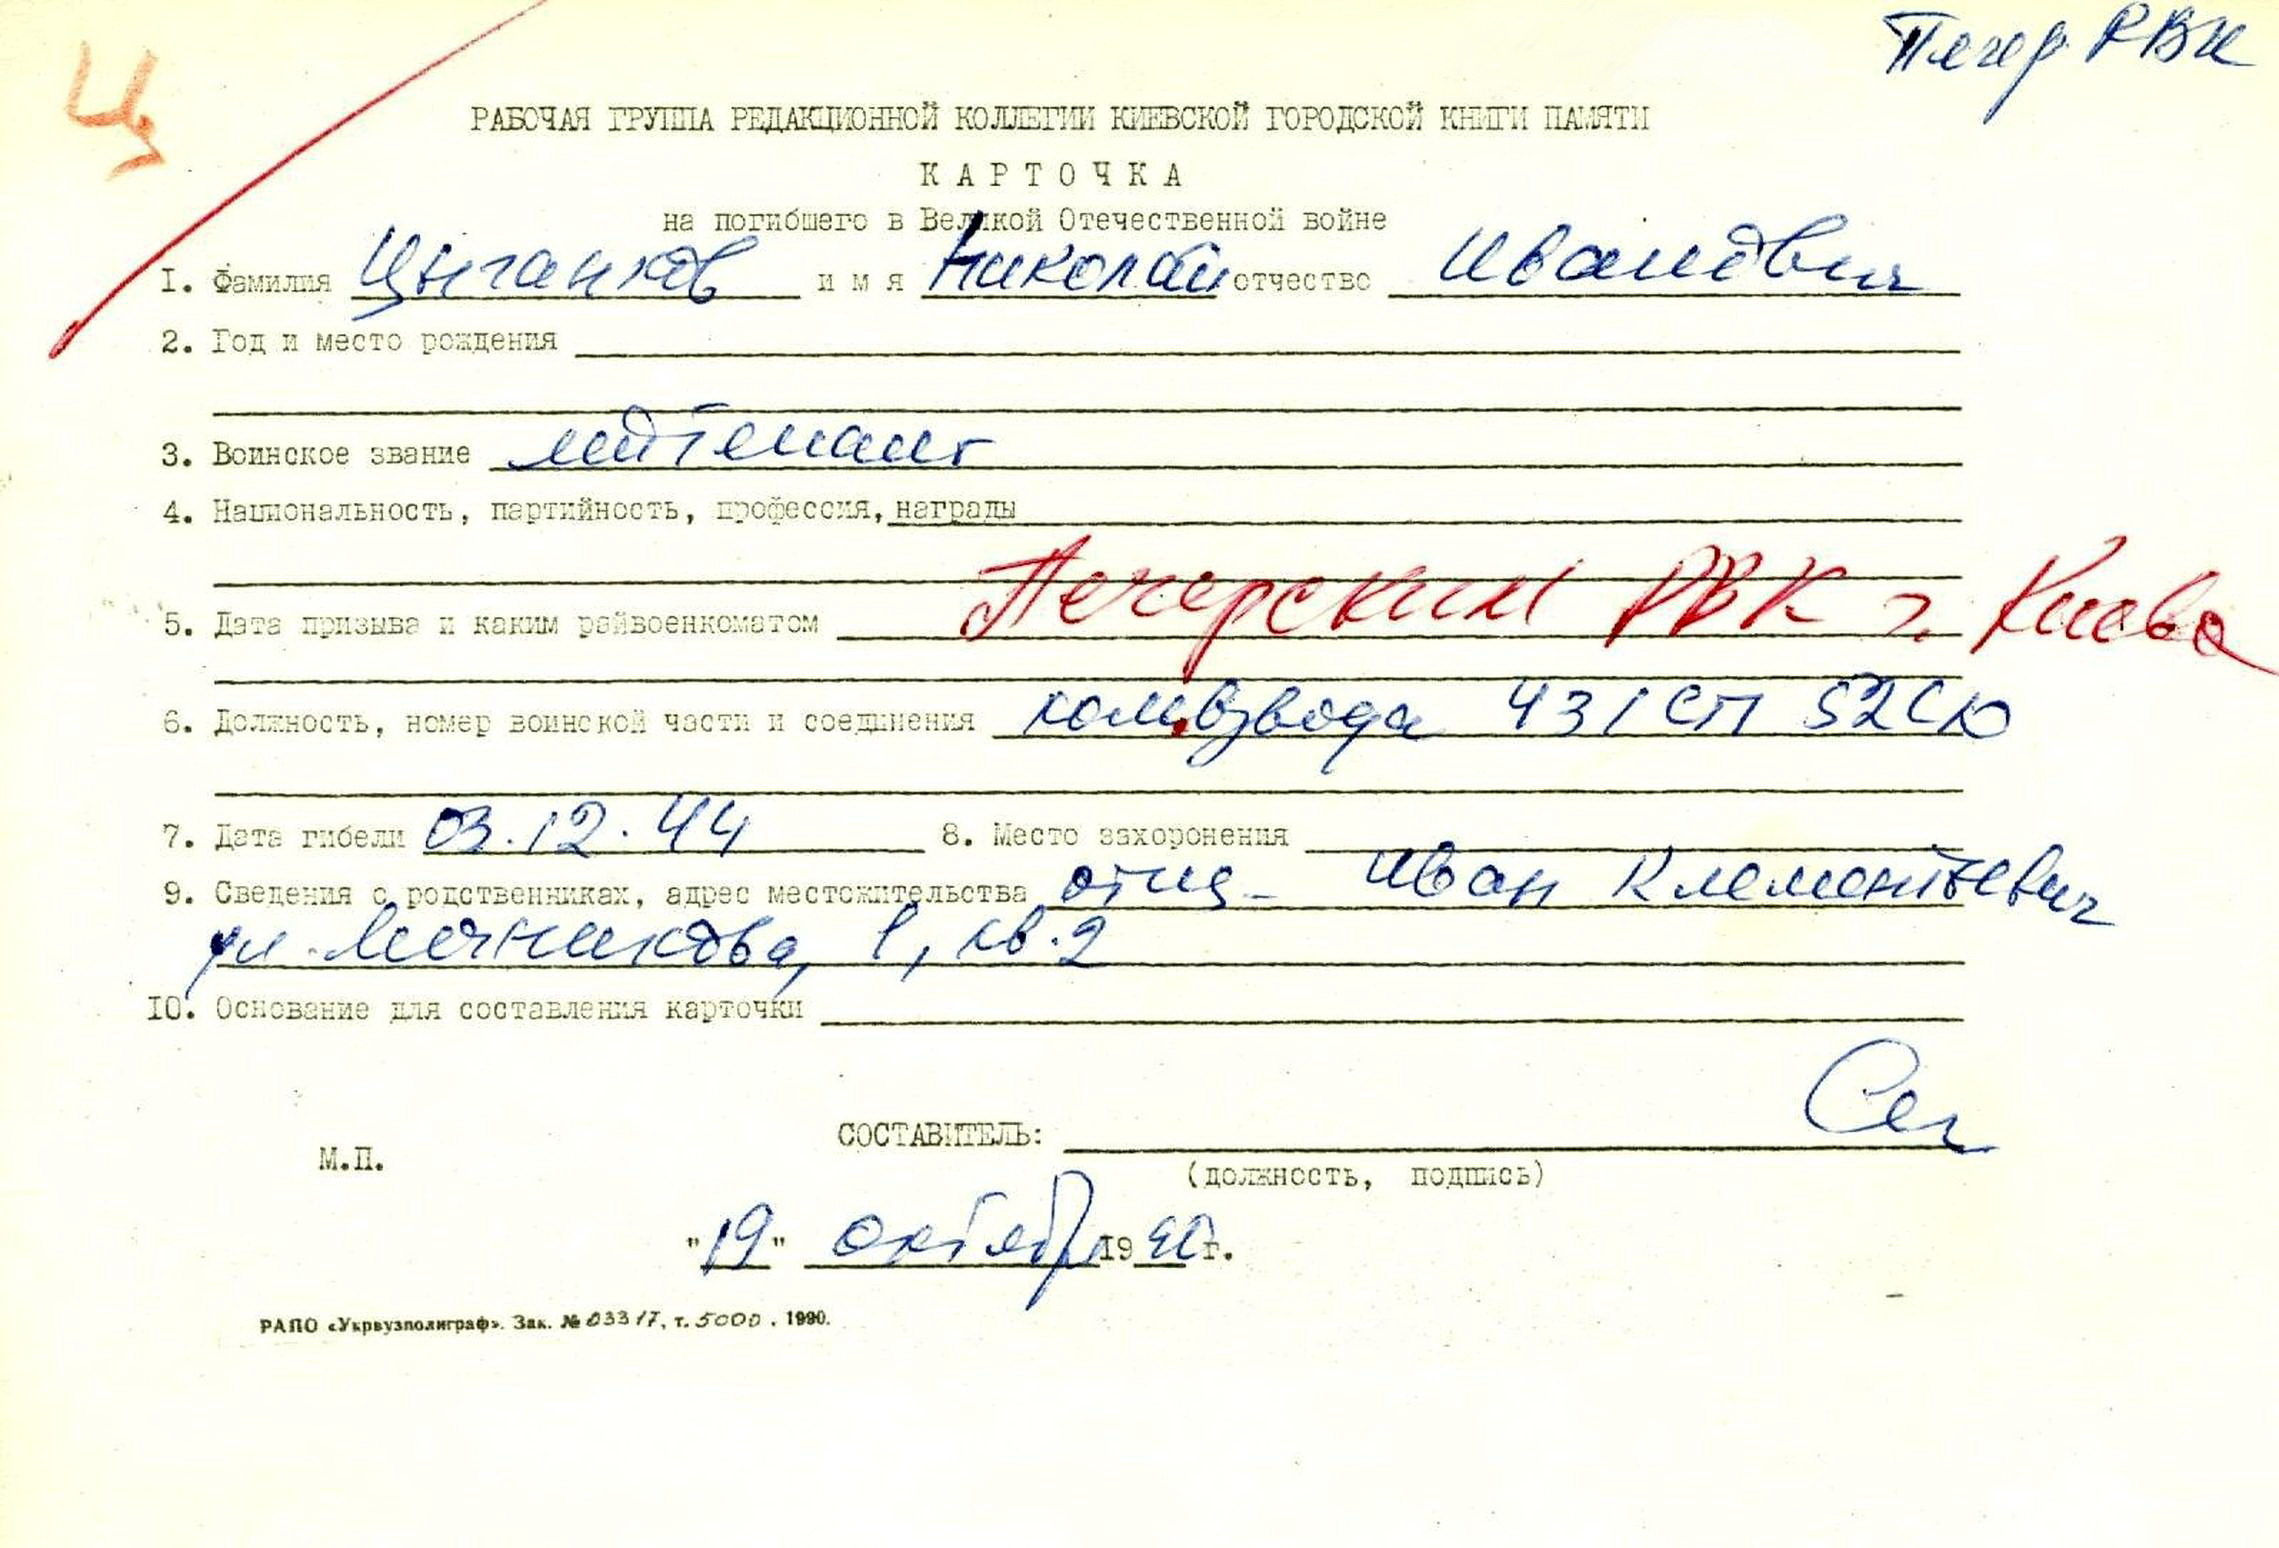 Ц
Печер. РВК
РАБОЧАЯ ГРУППА РЕДАКЦИОННОЙ КОЛЛЕГИИ КИЕВСКОЙ ГОРОДСКОЙ КНИГИ ПАМЯТИ
КАРТОЧКА
на погибшего в Великой Отечественной войне
I. Фамилия Цыганков имя Николай отчество Иванович
2. Год и место рождения
3. Воинское звание лейтенант
4. Национальность, партийность, профессия, награды
5. Дата призыва и каким райвоенкоматом Печерским РВК г. Киева
6. Должность, номер воинской части и соединения ком.взвода 431 СП 52СЮ
7. Дата гибели 03.12.44 8. Место захоронения
9. Сведения о родственниках, адрес местожительства отец - Иван Клементьевич
ул. Мечникова, 1, кв. 2
I0. Основание для составления карточки
СОСТАВИТЕЛЬ:
М.П.
(должность, подпись)
"19" октября 1990г.
РАПО «Укрвузполиграф». Зак. № 03317, т. 5000. 1990.